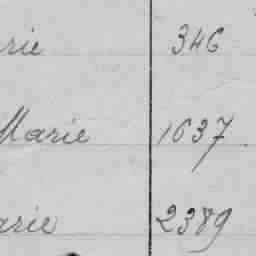 rie 346
Marie 1637
arie 2389